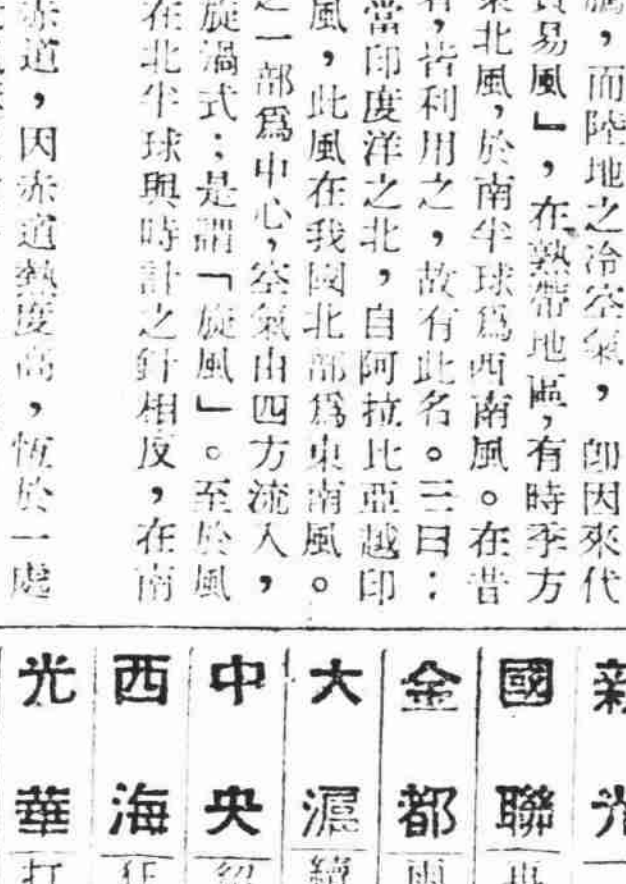 鵬，而陸地之冷空氣，卽因來代
貿易風」，在熱帶地區，有時季方
東北風，於南半球爲西南風。在昔
，皆利用之，故有此名。三曰：
當印度洋之北，自阿拉比亞越印
風，此風在我國北部爲東南風。
之一部爲中心，空氣由四方流入，
旋渦式；是謂「旋風」。至於風
在北半球與時計之針相反，在南
赤道，因赤道熱度高，恆於一處
新光
國聯
金都
大滬
中央
西海
光華